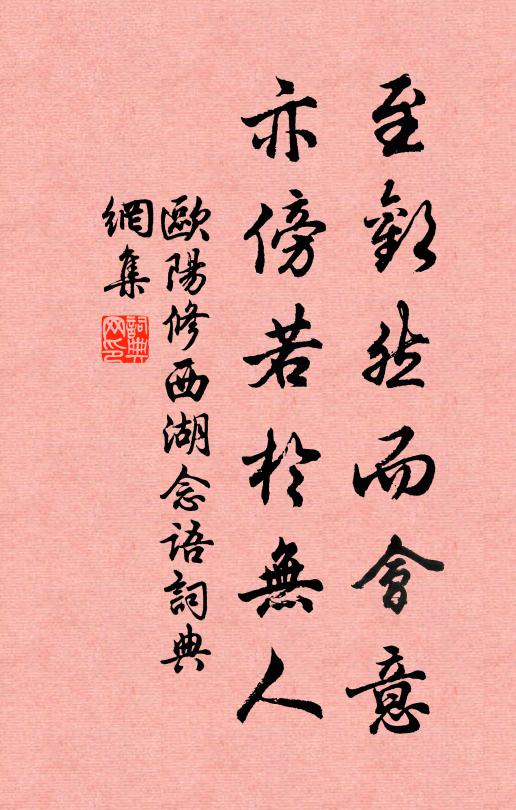 至歡然而會意
亦傍若於無人
歐陽修西湖念語詞典
網集
詞典
網印